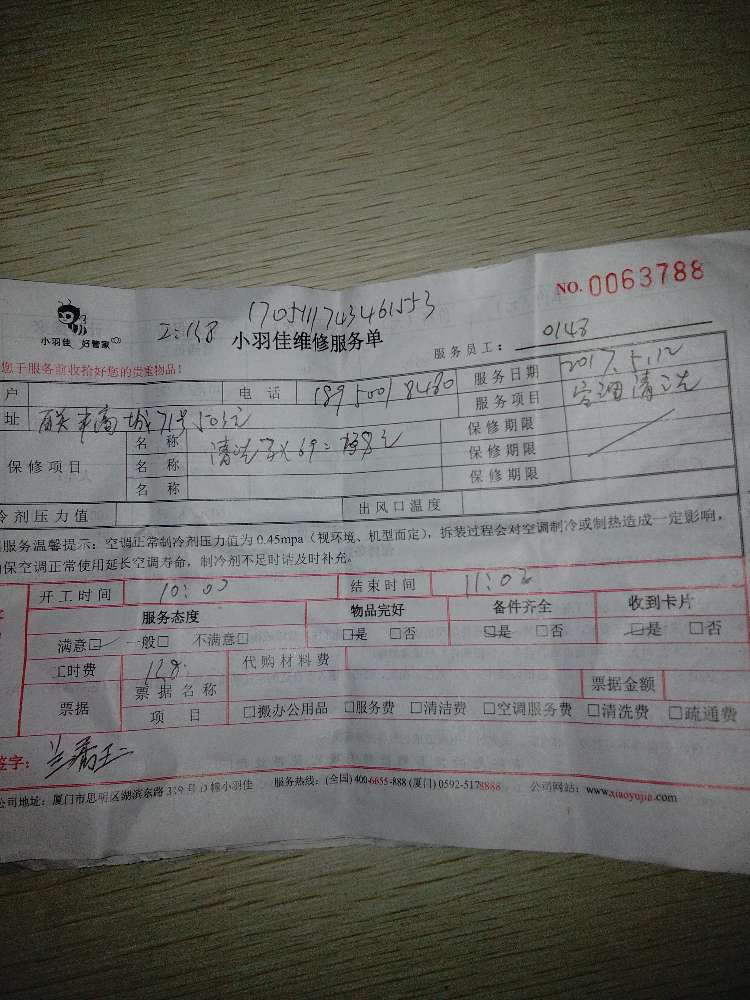 NO. 0063788
1705111743461553
小羽佳 好管家
小羽佳维修服务单
服务员工: 0148
您于服务前收拾好您的贵重物品!
户 电 话 18950018480 服务日期 2017.5.12
址 71号 服务项目 空调清洗
保修项目 名 称 清洗 保修期限
名 称 保修期限
名 称 保修期限
冷剂压力值 出风口温度
服务温馨提示:空调正常制冷剂压力值为 0.45mpa(视环境、机型而定),拆装过程会对空调制冷或制热造成一定影响,
保空调正常使用延长空调寿命,制冷剂不足时请及时补充。
开工时间 10:00 结束时间 11:02
服务态度 物品完好 备件齐全 收到卡片
满意□ 一般□ 不满意□ □是 □否 □是 □否 □是 □否
工时费 138 代购材料费
票据 票据名称 票据金额
项 目 □搬办公用品 □服务费 □清洁费 □空调服务费 □清洗费 □疏通费
签字:
公司地址:厦门市思明区湖滨东路 319 号 D 幢小羽佳 服务热线:(全国) 400-6655-888 (厦门) 0592-5178888 公司网站:www.xiaoyujia.com